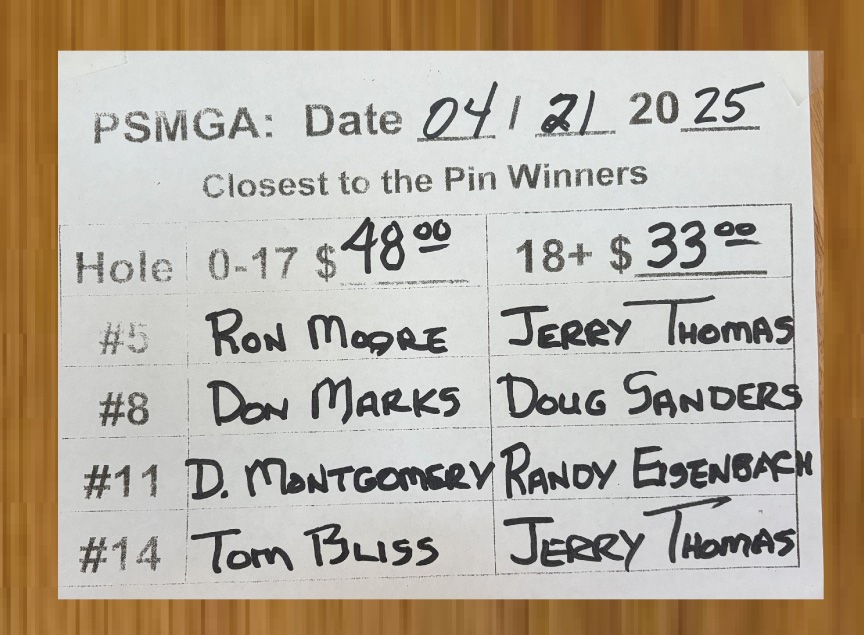 PSMGA: Date 04 / 21 20 25
Closest to the Pin Winners
Hole 0-17 $ 48 00 18+ $ 33 00
#5 RON MOORE JERRY THOMAS
#8 DON MARKS DOUG SANDERS
#11 D. MONTGOMERY RANDY EISENBACH
#14 TOM BLISS JERRY THOMAS